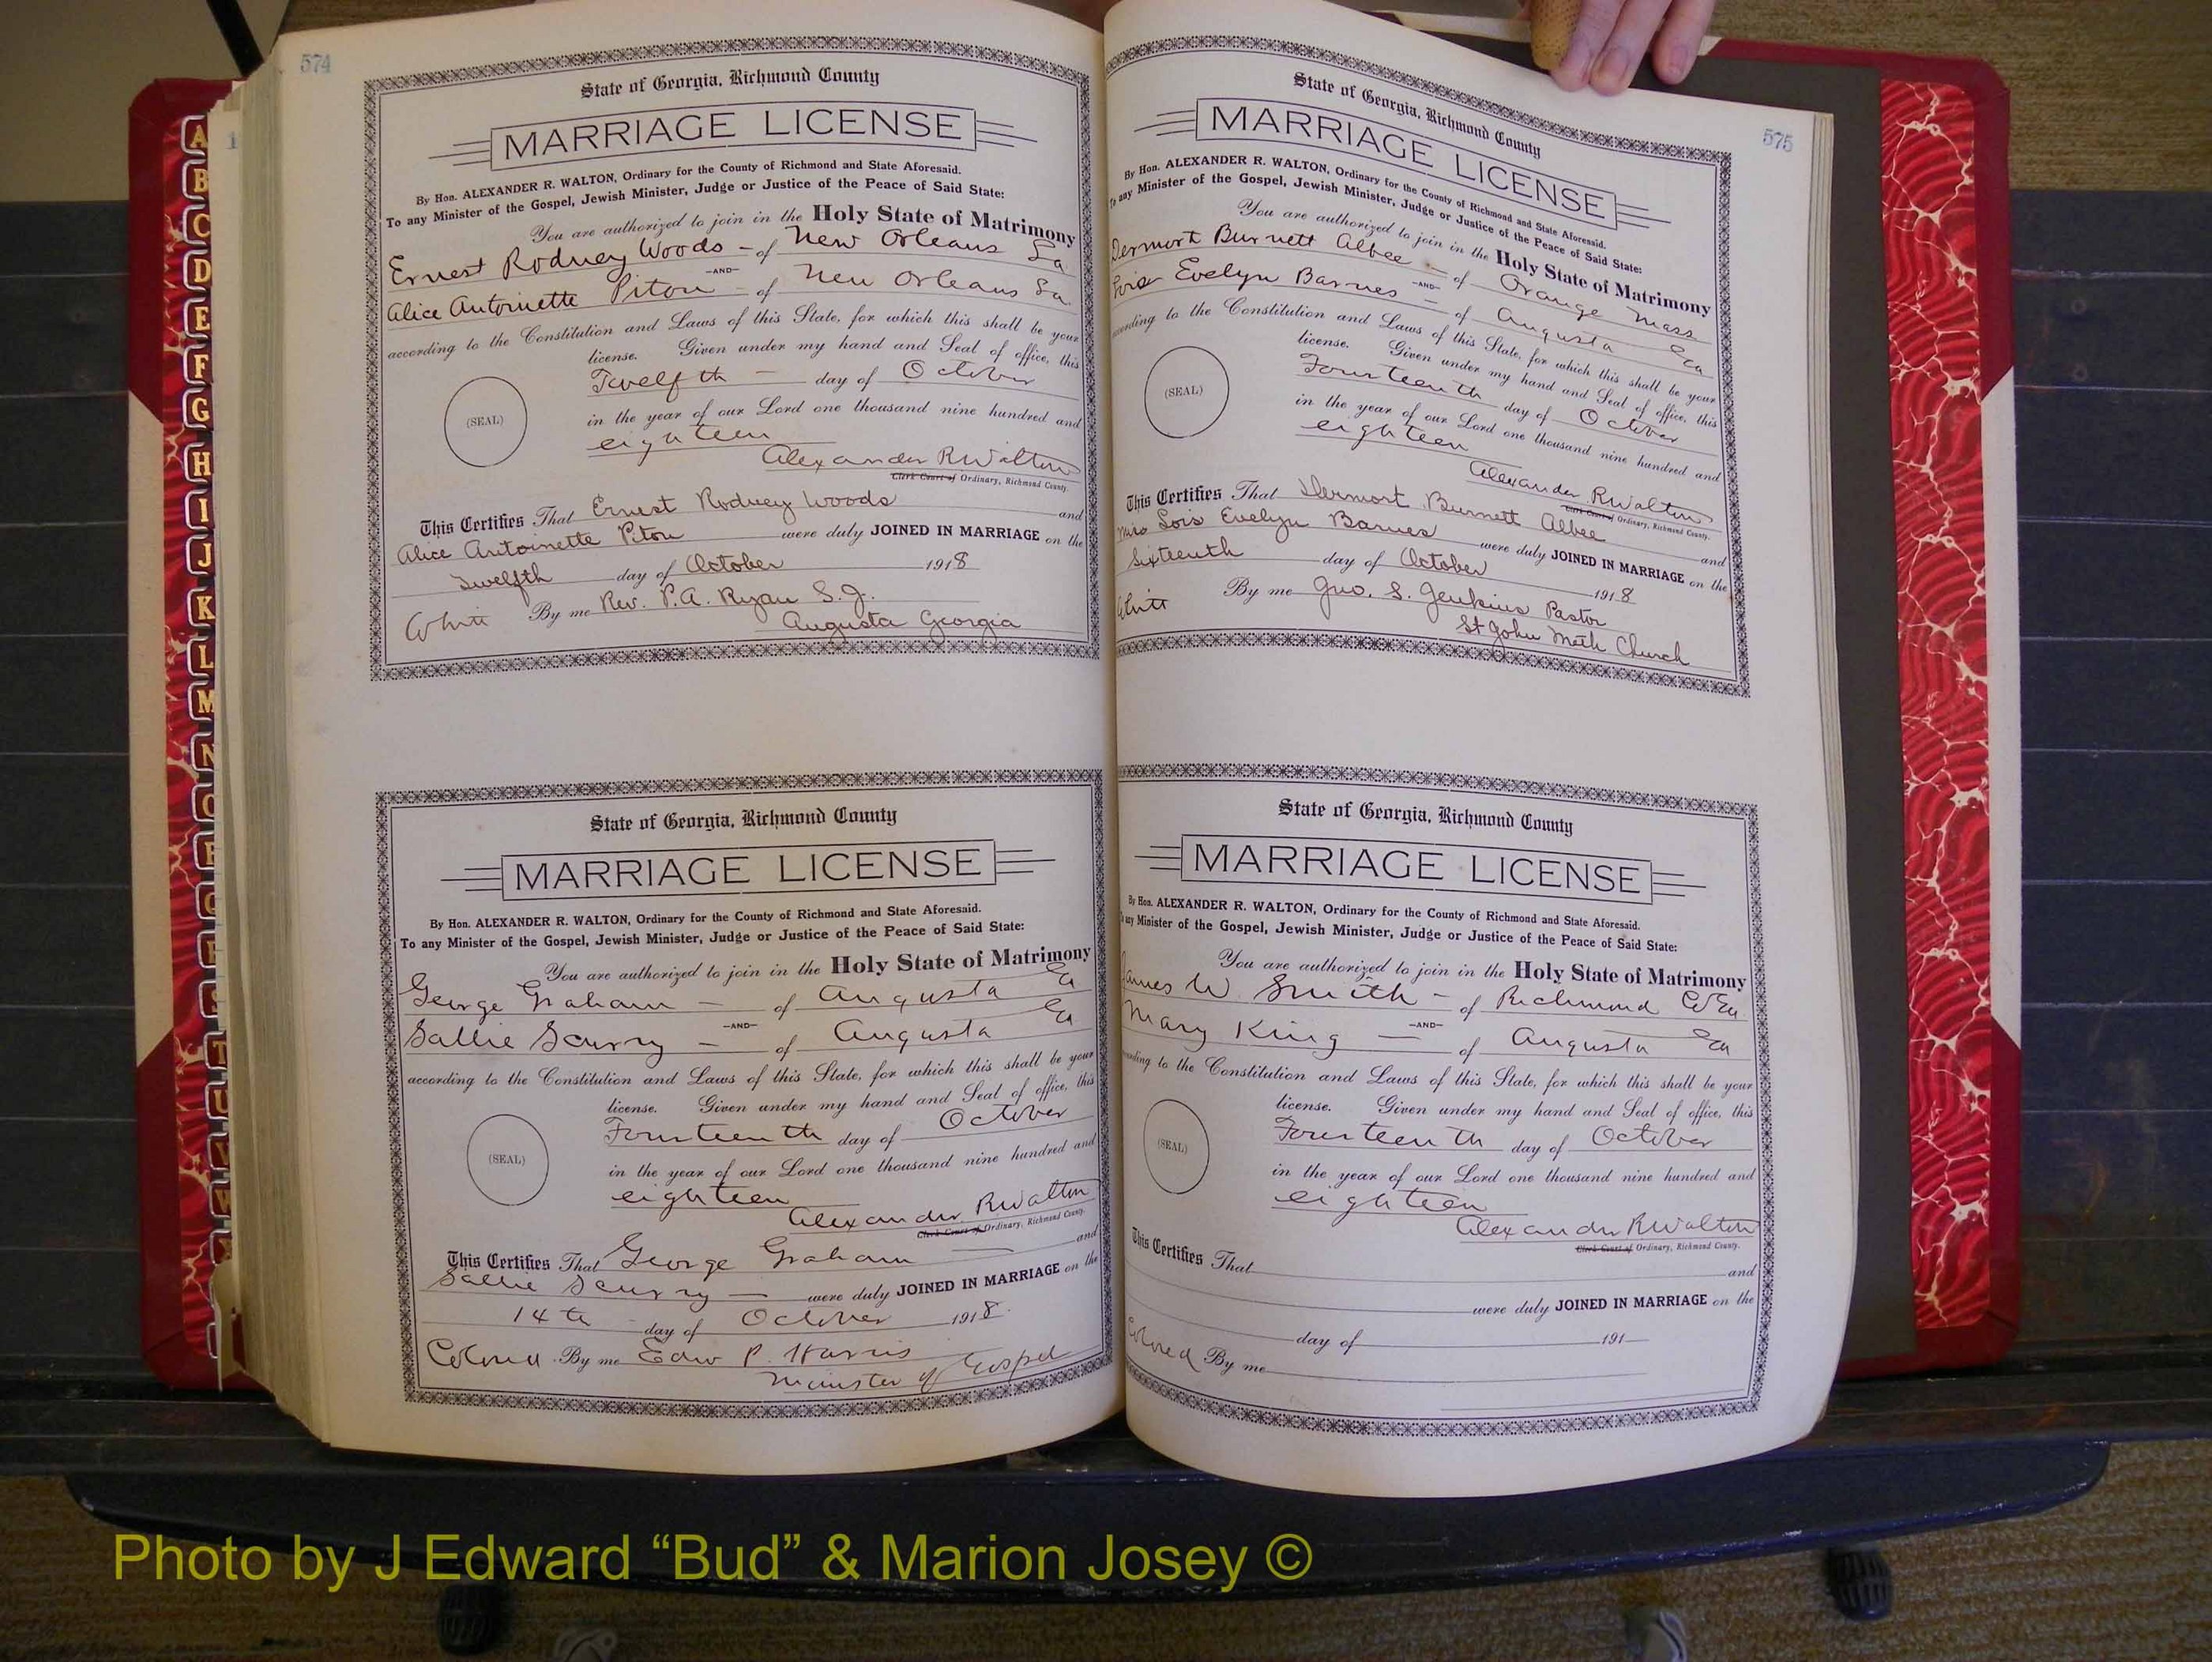 574
State of Georgia, Richmond County
MARRIAGE LICENSE
By Hon. ALEXANDER R. WALTON, Ordinary for the County of Richmond and State Aforesaid.
To any Minister of the Gospel, Jewish Minister, Judge or Justice of the Peace of Said State:
You are authorized to join in the Holy State of Matrimony
Ernest Rodney Woods - of New Orleans La.
-AND-
Alice Antoinette Piton - of New Orleans La.
according to the Constitution and Laws of this State, for which this shall be your
license. Given under my hand and Seal of office, this
Twelfth - day of October
(SEAL)
in the year of our Lord one thousand nine hundred and
eighteen
Alexander R Walton
Clerk Court of Ordinary, Richmond County.
This Certifies That Ernest Rodney Woods and
Alice Antoinette Piton were duly JOINED IN MARRIAGE on the
Twelfth day of October 1918
White By me Rev. P.A. Ryan S.J.
Augusta Georgia
State of Georgia, Richmond County
MARRIAGE LICENSE
By Hon. ALEXANDER R. WALTON, Ordinary for the County of Richmond and State Aforesaid.
To any Minister of the Gospel, Jewish Minister, Judge or Justice of the Peace of Said State:
You are authorized to join in the Holy State of Matrimony
George Graham - of Augusta Ga
-AND-
Sallie Scurry - of Augusta Ga
according to the Constitution and Laws of this State, for which this shall be your
license. Given under my hand and Seal of office, this
Fourteenth day of October
(SEAL)
in the year of our Lord one thousand nine hundred and
eighteen
Alexander R Walton
Clerk Court of Ordinary, Richmond County.
This Certifies That George Graham - and
Sallie Scurry - were duly JOINED IN MARRIAGE on the
14th day of October 1918.
Colored By me Edw P. Harris
Minister of Gospel
575
State of Georgia, Richmond County
MARRIAGE LICENSE
By Hon. ALEXANDER R. WALTON, Ordinary for the County of Richmond and State Aforesaid.
To any Minister of the Gospel, Jewish Minister, Judge or Justice of the Peace of Said State:
You are authorized to join in the Holy State of Matrimony
Dermort Burnett Albee - of Orange Mass
-AND-
Lois Evelyn Barnes - of Augusta Ga
according to the Constitution and Laws of this State, for which this shall be your
license. Given under my hand and Seal of office, this
Fourteenth day of October
(SEAL)
in the year of our Lord one thousand nine hundred and
eighteen
Alexander R Walton
Clerk Court of Ordinary, Richmond County.
This Certifies That Dermort Burnett Albee and
Miss Lois Evelyn Barnes were duly JOINED IN MARRIAGE on the
Sixteenth day of October 1918
White By me Geo. S. Jenkins Pastor
St John Meth Church
State of Georgia, Richmond County
MARRIAGE LICENSE
By Hon. ALEXANDER R. WALTON, Ordinary for the County of Richmond and State Aforesaid.
To any Minister of the Gospel, Jewish Minister, Judge or Justice of the Peace of Said State:
You are authorized to join in the Holy State of Matrimony
James W. Smith - of Richmond Co Ga.
-AND-
Mary King - of Augusta Ga
according to the Constitution and Laws of this State, for which this shall be your
license. Given under my hand and Seal of office, this
Fourteenth day of October
(SEAL)
in the year of our Lord one thousand nine hundred and
eighteen
Alexander R Walton
Clerk Court of Ordinary, Richmond County.
This Certifies That and
were duly JOINED IN MARRIAGE on the
day of 191
Colored By me
A
B
C
D
E
F
G
H
I
J
K
L
M
N
O
P
Q
R
S
T
U
V
W
Photo by J Edward “Bud” & Marion Josey ©